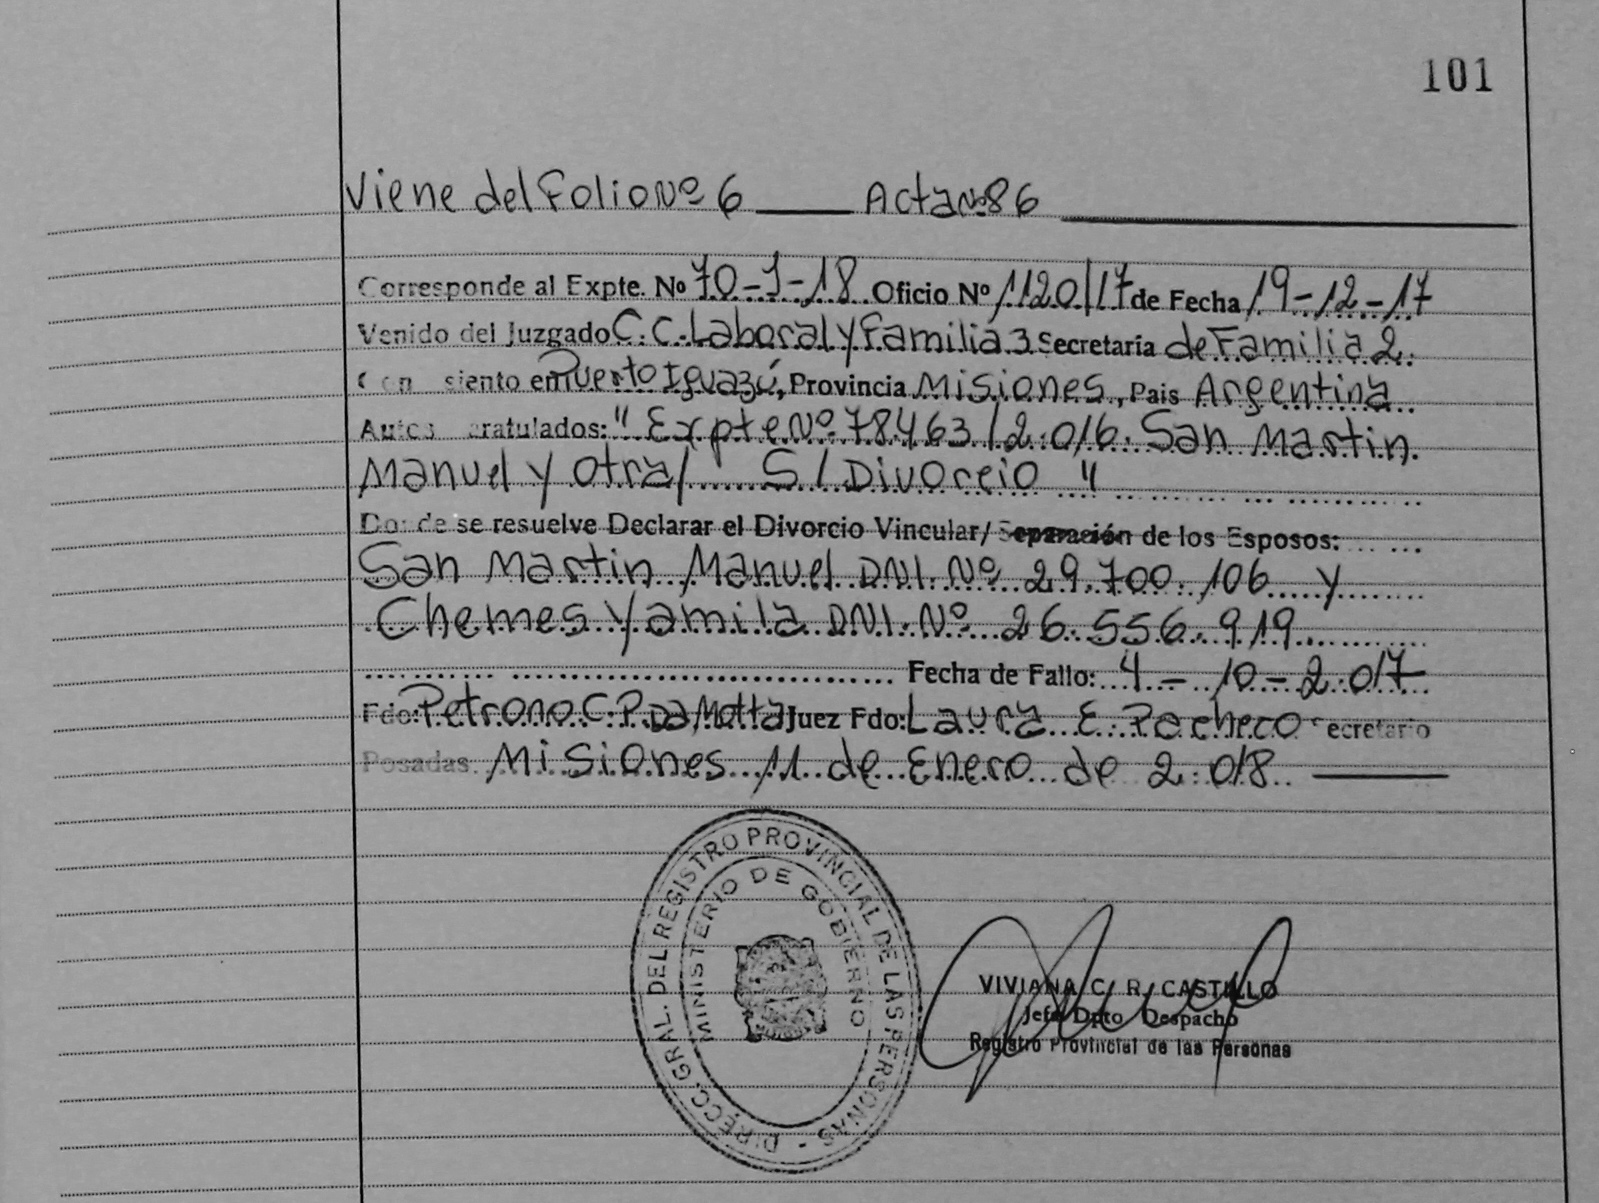 101
Viene del Folio Nº 6 Acta Nº 86
Corresponde al Expte. Nº 70-J-18 Oficio Nº 1120/17 de Fecha 19-12-17
Venido del Juzgado C.C. Laboral y Familia 3 Secretaría de Familia 2.
Con siento en Puerto Iguazú, Provincia Misiones, Pais Argentina
Autos aratulados: "Expte Nº 78463/2.016. San Martin
Manuel y Otra/ S/Divorcio"
Donde se resuelve Declarar el Divorcio Vincular/Separación de los Esposos:
San Martin Manuel DNI. Nº 29.700.106 y
Chemes Yamila DNI. Nº 26.556.919
Fecha de Fallo: 4-10-2.017
Fdo: Petrono C.P. Da Motta Juez Fdo: Laura E. Pacheco Secretario
Posadas Misiones 11 de Enero de 2.018
DIRECC. GRAL. DEL REGISTRO PROVINCIAL DE LAS PERSONAS -
MINISTERIO DE GOBIERNO
VIVIANA C. R. CASTILLO
Jefa Dpto Despacho
Registro Provincial de las Personas